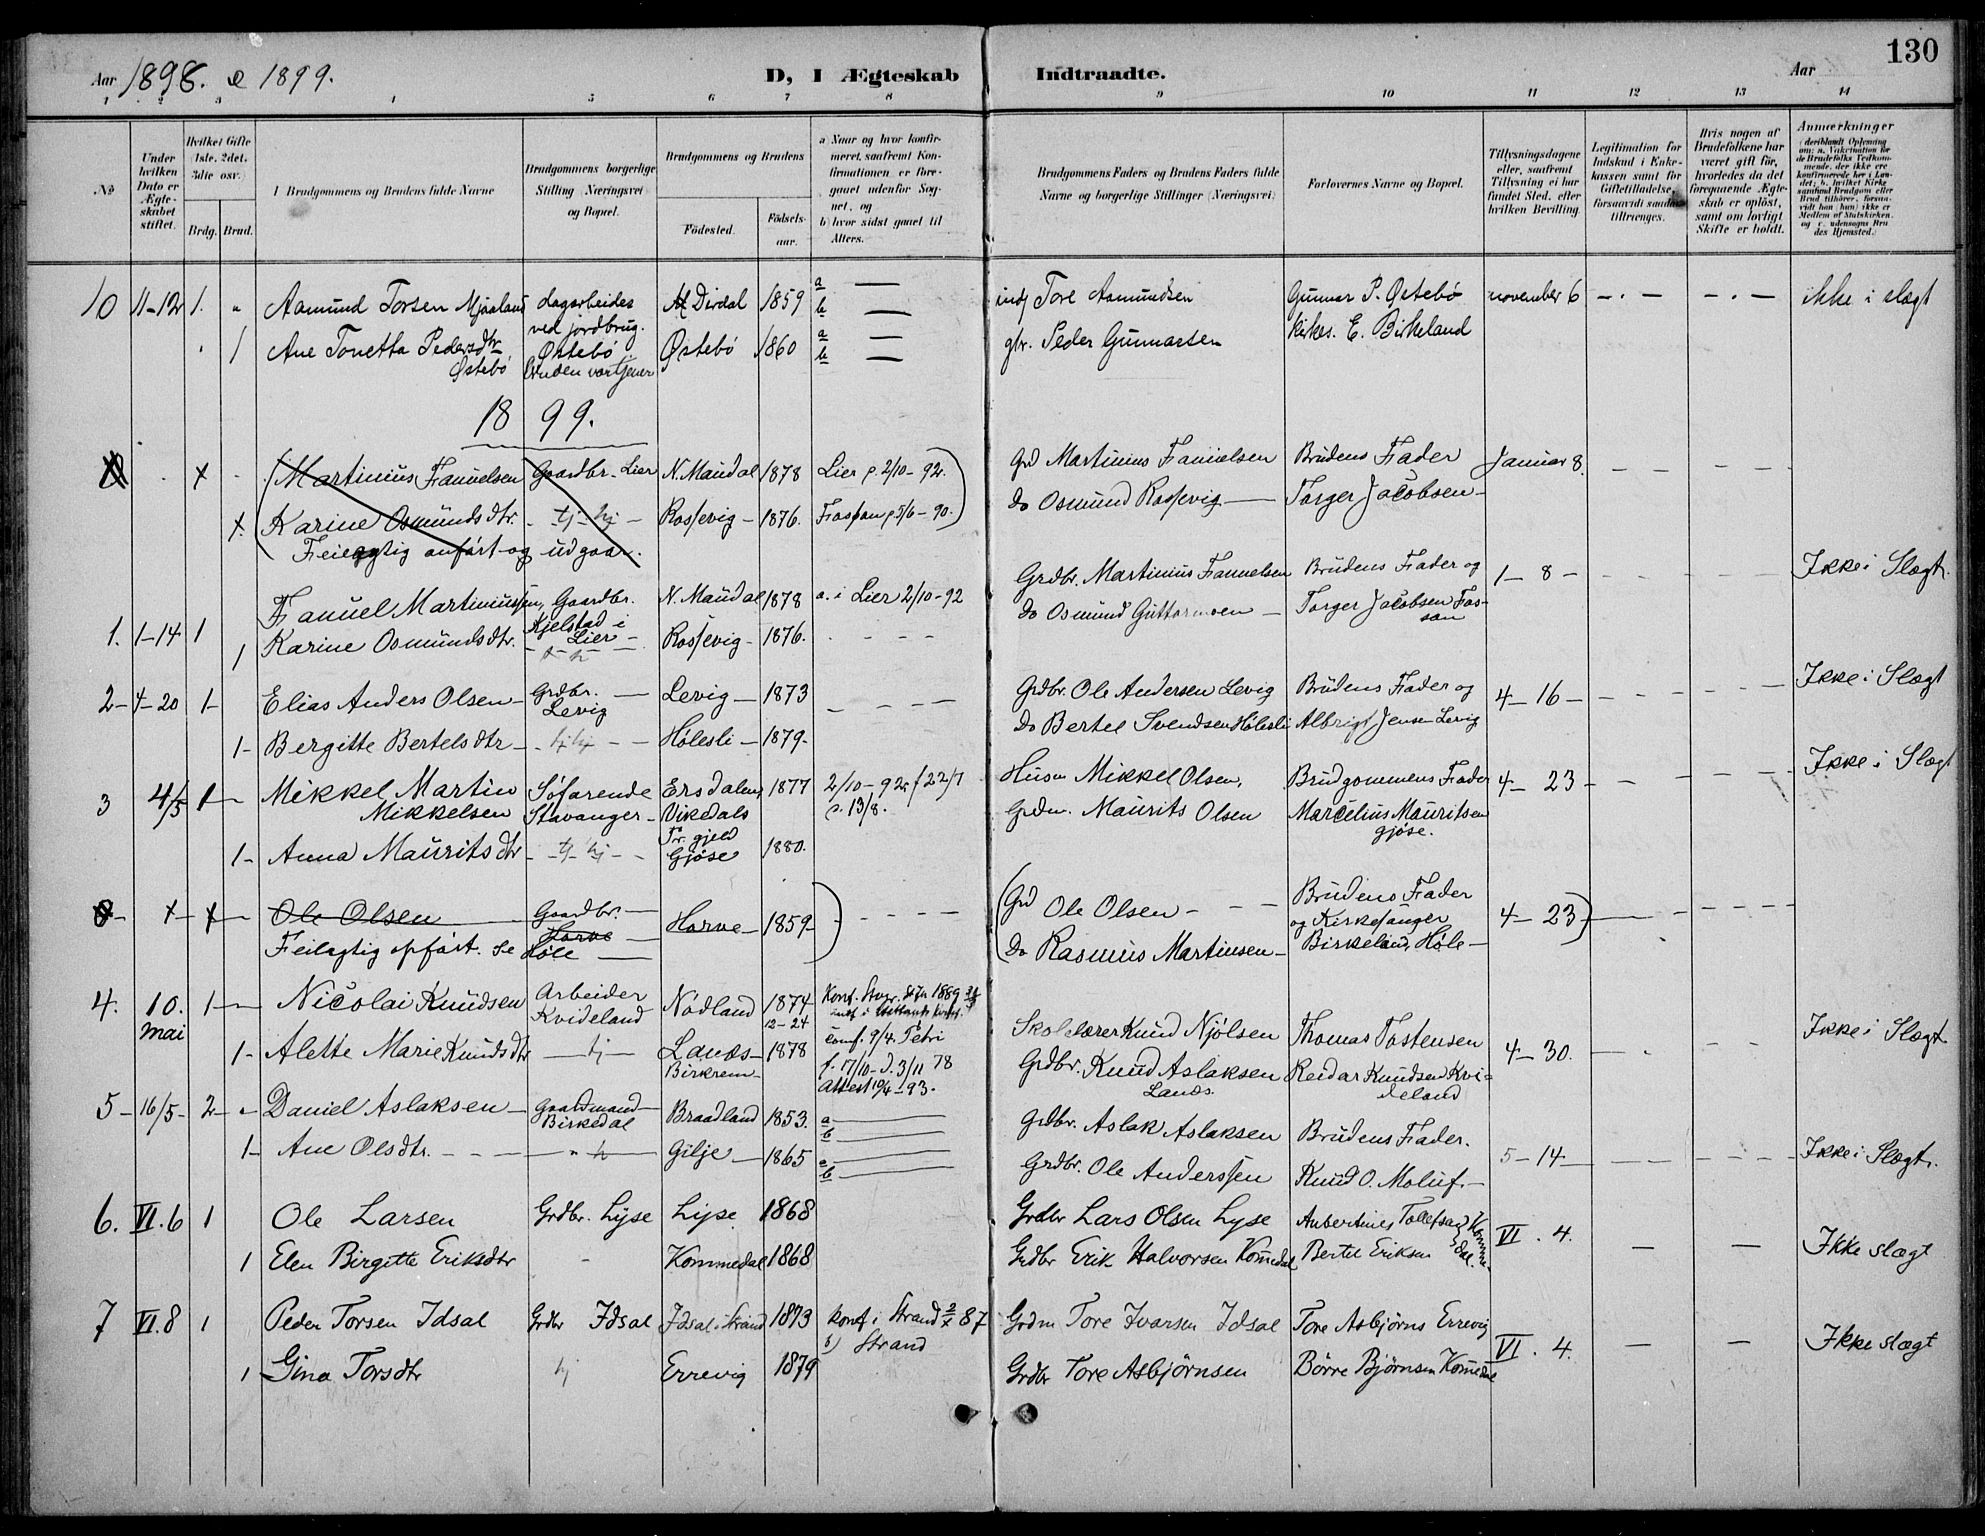 130
Aar 1898. & 1899. D, I Ægteskab Indtraadte. Aar
1 2 3 4 5 6 7 8 9 10 11 12 13 14
No
Under hvilken Dato er Ægteskabet stiftet.
Hvilket Gifte 1ste. 2det. 3die osv.)
Brdg. Brud.
I Brudgommens og Brudens fulde Navne
Brudgommens borgerlige Stilling (Næringsvei) og Bopæl.
Brudgommens og Brudens
Fødested.
Fødsels-aar.
a Naar og hvor konfirmeret, saafremt Konfirmationen er foregaaet udenfor Sognet, og
b) hvor sidst gaaet til Alters.
Brudgommens Faders og Brudens Faders fulde Navne og borgerlige Stillinger (Næringsvei)
Forlovernes Navne og Bopæl.
Tillysningsdagene eller, saafremt Tillysning ei har fundet Sted, efter hvilken Bevilling.
Legitimation for Indskud i Enkekassen samt for Giftetilladelse, forsaavidt saadan tiltrænges.
Hvis nogen af Brudefolkene har været gift før, hvorledes da det foregaaende Ægteskab er opløst, samt om lovligt Skifte er holdt.
Anmærkninger
10 11-12 1. " Aamund Torsen Mjaaland dagarbeider ved jordbrug. Dirdal 1859 a — b — Tore Asmundsen Gunnar P. Østebø november 6 — . — — . — ikke i slægt
1 Ane Tonetta Pedersdtr Østebø Østebø Østebø 1860 a — b — gbr. Peder Gunnarsen kirkes. E. Birkeland
1899.
x (Martinius Fanuelsen Gaardbr. Lier N. Maudal 1878 Lier p. 2/10-92.) Grd Martinius Fanuelsen Brudens Fader Januar 8.
x. (Karine Osmundsdtr. - tj - hj - Rossevig - 1876. Fossan p. 5/6 - 90.) do Osmund Rossevig — Torger Jacobsen -
Feilagtig anført og udgaar.
1. 1-14 1 Fanuel Martiniussen, Gaardbr. Kjelstad i Lier N. Maudal 1878 a. i Lier 2/10-92 Grdbr. Martinius Fanuelsen Brudens Fader og 1 - 8 - Ikke i Slægt.
1 Karine Osmundsdtr. Rossevig - 1876. - - - - do Osmund Guttormsen — Torger Jacobsen Fossan
2 - 4-20 1- Elias Anders Olsen - Grdbr. — Levig Levig - 1873 - - - - Grdbr. Ole Andersen Levig Brudens Fader og 4 - 16 - Ikke i Slægt
1- Bergitte Bertelsdtr - - hj - - Hølesli - 1879. do Bertel Svendsen Hølesli Albrigt Jensen Levig
3 4/5 1 - Mikkel Martin Mikkelsen Søfarende Stavanger - Ersdalen, Vikedals Pr. gjeld 1877 2/10-92 f 22/7 p. 13/8. Husm Mikkel Olsen, Brudgommens Fader 4 - 23 - Ikke i Slægt
1- Anna Mauritsdtr - tj - hj - - Gjøse 1880. Grdm. Maurits Olsen Marcelius Mauritsen gjøse.
Ole Olsen Gaardbr. - Horve — Horve - 1859 - ) - - - - (Grd Ole Olsen - - - Brudens Fader og Kirkesanger 4 - 23)
Feilagtig opført. Se Høle — do Rasmus Martinsen - Birkeland, Høle -
4. 10. mai 1 - Nicolai Knudsen Arbeider Kvideland Nødland 1874 12-24 Skolelærer Knud Njølsen Thomas Tostensen 4 - 30. Ikke i Slægt
1- Alette Marie Knudsdtr - hj - Lands - Birkrem - 1878 conf. 9/4 Petri f. 17/10 - d. 3/11 78 Attest 19/4 - 93. Grdbr. Knud Aslaksen Lands. Reidar Knudsen Kvideland
5 - 16/5 - 2 - " Daniel Aslaksen - Gaardmand - Birkedal Braadland 1853. a — b — Grdbr. Aslak Aslaksen Brudens Fader. 5 - 14 - Ikke i Slægt.
1- Ane Olsdtr. - - - Gilje - 1865 a — b — Grdbr. Ole Anderssen Knud O. Moluf. -
6. VI. 6 1 Ole Larsen Grdbr. Lyse Lyse 1868 Grdbr Lars Olsen Lyse VI . 4. — — Ikke slægt
1 Elen Birgitte Eriksdtr - Kommedal 1868 Grdbr Erik Halvorsen Kom̄edal Bertel Eriksen
7 VI. 8 1 Peder Torsen Idsal Grdbr Idsal Idsal i Strand 1873 konf i Strand 87 b) Strand Grdm Tore Ivarsen Idsal Tore Asbjørns Errevig VI . 4. — — Ikke slægt
1 Gina Torsdtr hj Errevig 1879 Grdbr Tore Asbjørnsen Børre Bjørnsen Kom̄edal